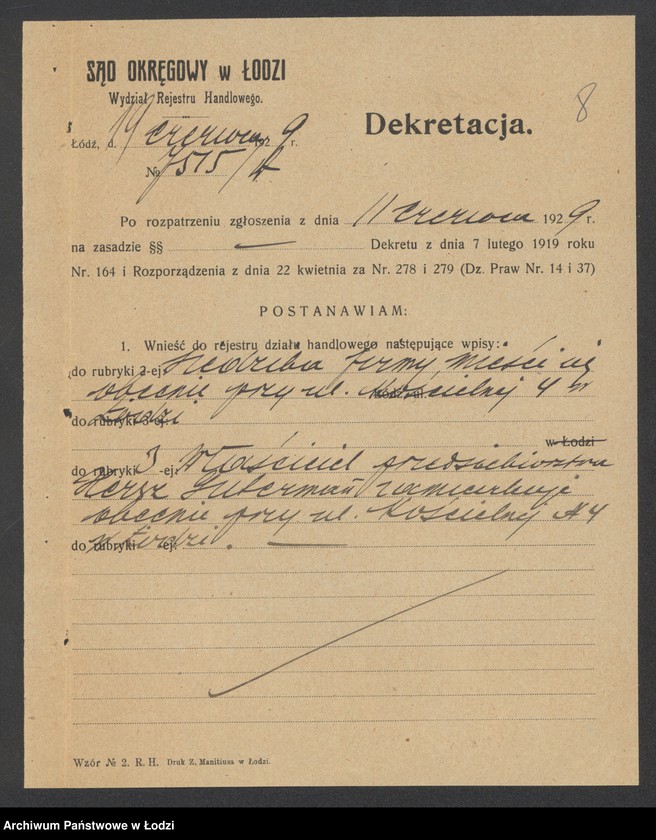 SĄD OKRĘGOWY w ŁODZI
Wydział Rejestru Handlowego.
8
Dekretacja.
Łódź, d. 19 czerwca 1929 r.
№ 7515/A
Po rozpatrzeniu zgłoszenia z dnia 11 czerwca 1929 r.
na zasadzie §§ — Dekretu z dnia 7 lutego 1919 roku
Nr. 164 i Rozporządzenia z dnia 22 kwietnia za Nr. 278 i 279 (Dz. Praw Nr. 14 i 37)
POSTANAWIAM:
1. Wnieść do rejestru działu handlowego następujące wpisy:
do rubryki 2-ej: Siedziba firmy mieści się
obecnie przy ul. Kościelnej 4 w
do rubryki 3-ej: Łodzi
w Łodzi
do rubryki 3 -ej: Właściciel przedsiębiorstwa
Hersz Guterman zamieszkuje
obecnie przy ul. Kościelnej № 4
do rubryki -ej: w Łodzi. —
Wzór № 2. R. H. Druk Z. Manitiusa w Łodzi.
Archiwum Państwowe w Łodzi